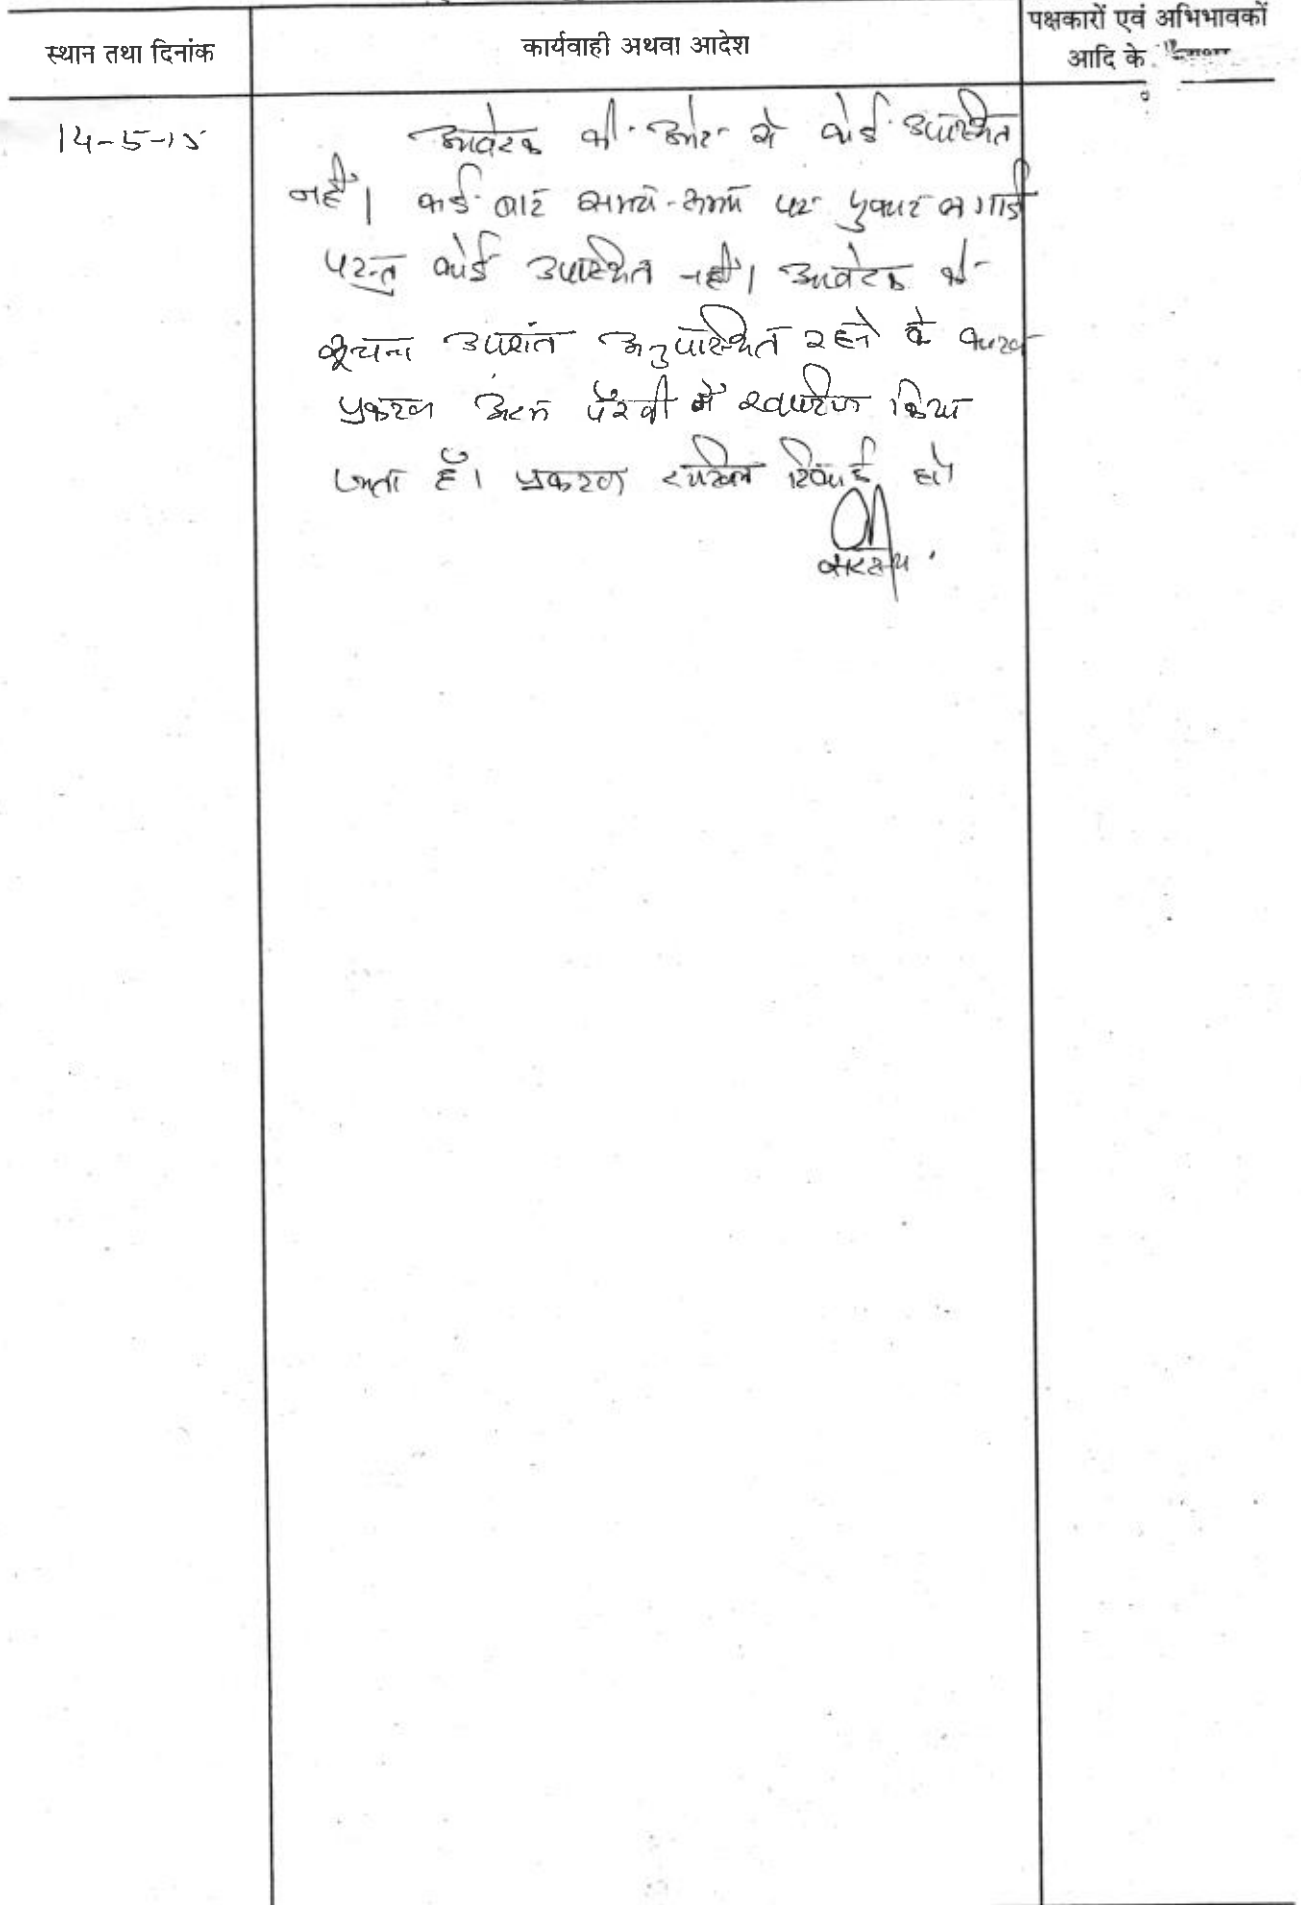 स्थान तथा दिनांक
कार्यवाही अथवा आदेश
पक्षकारों एवं अभिभावकों
आदि के
14-5-15
आवेदक की ओर से कोई उपस्थित
नहीं। कई बार समय-समय पर पुकार लगाई
परन्तु कोई उपस्थित नहीं। आवेदक को
सूचना उपरांत अनुपस्थित रहने के कारण
प्रकरण अदम पैरवी में खारिज किया
जाता है। प्रकरण दाखिल रिकार्ड हो
सदस्य